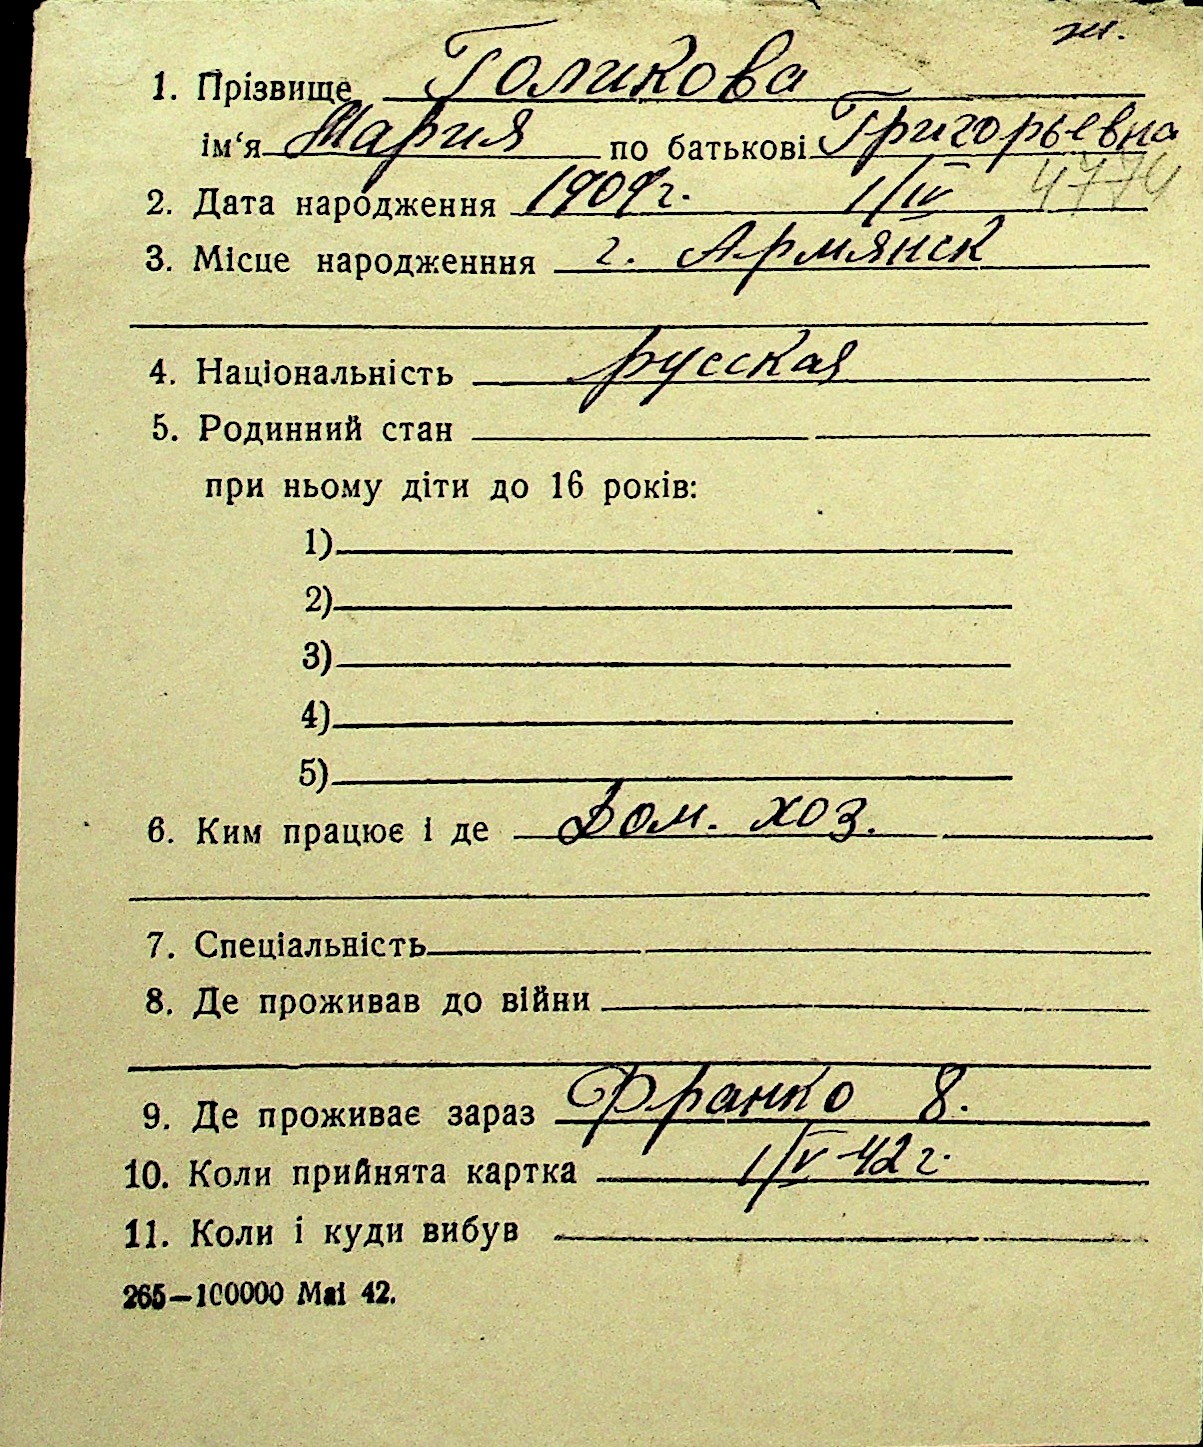 ж.
1. Прізвище Голикова
ім‘я Мария по батькові Григорьевна
2. Дата народження 1909г. 1/IV
3. Місце народженння г. Армянск
4. Національність русская
5. Родинний стан
при ньому діти до 16 років:
1)
2)
3)
4)
5)
6. Ким працює і де Дом. хоз.
7. Спеціальність
8. Де проживав до війни
9. Де проживає зараз Франко 8.
10. Коли прийнята картка 1/V-42 г.
11. Коли і куди вибув
265—100000 Mai 42.